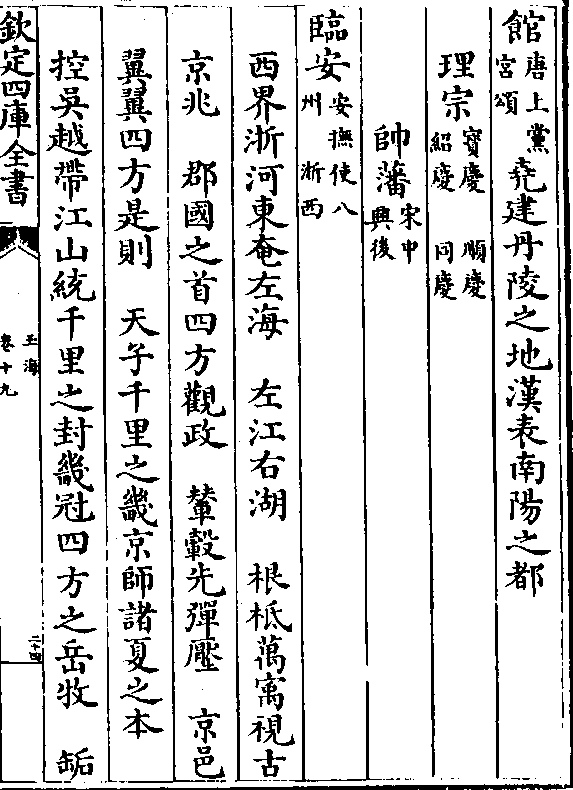 館唐上黨宮頌堯建丹陵之地漢表南陽之都
理宗寶慶 順慶紹慶 同慶
帥藩宋中興後
臨安安撫使八州 浙西
西界浙河東奄左海 左江右湖 根柢萬㝢視古
京兆 郡國之首四方觀政 輦轂先彈壓 京邑
翼翼四方是則 天子千里之畿京師諸夏之本
控吳越帶江山統千里之封畿冠四方之岳牧 缿
欽定四庫全書
玉海
卷十九
二十四